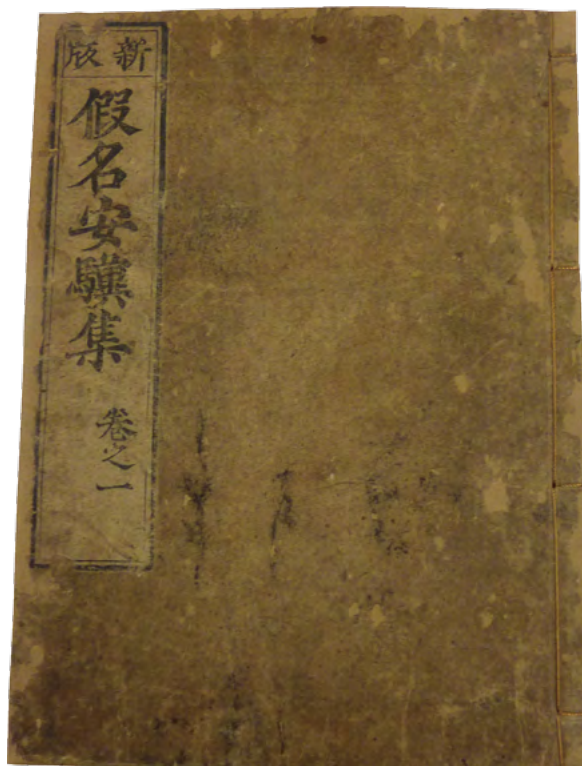 新版
假名安驥集
卷之一